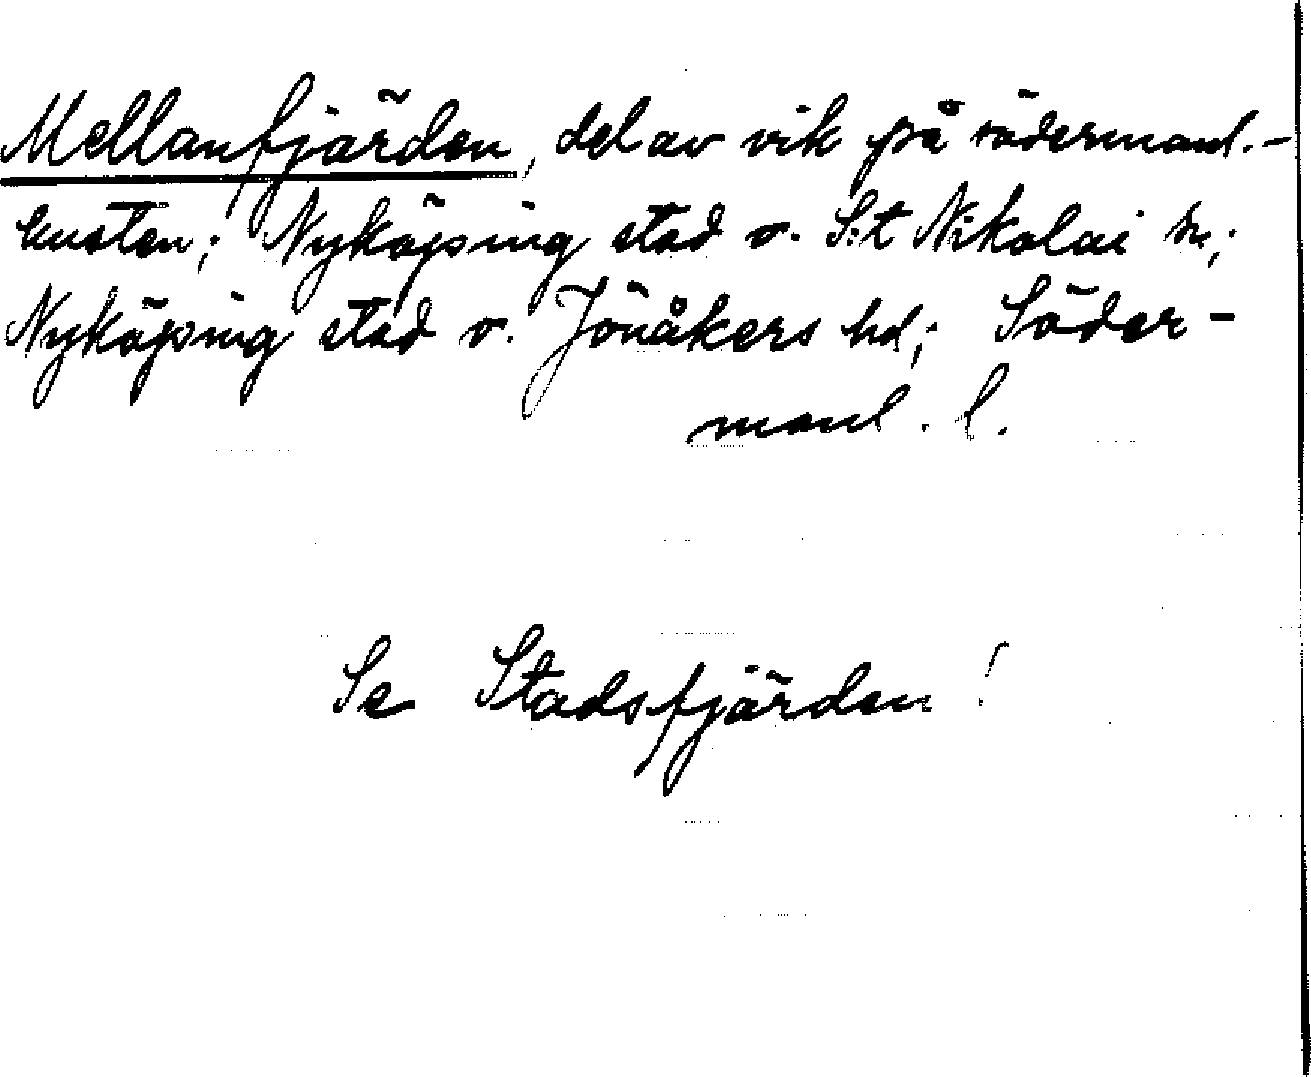 Mellanfjärden, del av vik på södermanl.-
kusten; Nyköping stad o. S:t Nikolai sn;
Nyköping stad o. Jönåkers hd; Söder-
manl. l.
Se Stadsfjärden!